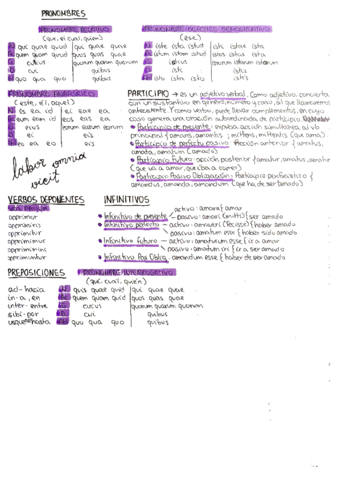 PRONOMBRES
PRONOMBRE RELATIVO
(que, el cual, quien)
N qui quae quod qui quae quae
A quem quam quod quos quas quae
G cuius quorum quarum quorum
D cui quibus
Ab quo qua quo quibus
(ese)
N iste ista istud isti istae ista
A istum istam istud istos istas ista
G istius
D isti istis
Ab isto ista isto istis
PRONOMBRE ANAFÓRICO
(este, él, aquel)
N is ea id ei eae ea
A eum eam id eos eas ea
G eius eorum earum eorum
D ei eis
Ab eo ea eo eis
labor omnia
vicit
PARTICIPIO → es un adjetivo verbal. Como adjetivo, concierta
con un sustantivo en género, número y caso, al que llamaremos
antecedente. Y como verbo, puede llevar complementos, en cuyo
caso genera una oración subordinada de participio.
• Participio de presente: expresa acción simultánea al vb
principal (amans, amantis / mittens, mittentis (que ama)
• Participio de perfecto pasivo: acción anterior (amatus,
amata, amatum (amado)
• Participio Futuro: acción posterior (amaturus,
(que va a amar, que iba a comer)
• Participio Pasivo Obligación:
amandus, amanda, amandum (que ha de ser amado)
VERBOS DEPONENTES
opprimor
opprimeris
opprimitur
opprimimur
opprimimini
opprimuntur
INFINITIVOS
• Infinitivo de presente
activo: amare { amar
pasivo: amari (mitti) { ser amado
• Infinitivo perfecto
activo: amavisse { haber amado
pasivo: amatum esse { haber sido amado
• Infinitivo futuro
activo: amaturum esse { ir a amar
pasivo: amatum iri { ir a ser amado
• Infinitivo Pas Oblig.: amandum esse { haber de ser amado
PREPOSICIONES
ad - hacia
in - a, en
inter - entre
usque - hasta
PRONOMBRE INTERROGATIVO
(qué, cuál, quién)
N quis quae quid qui quae quae
A quem quam quid quos quas quae
G cuius quorum quarum quorum
D cui quibus
Ab quo qua quo quibus